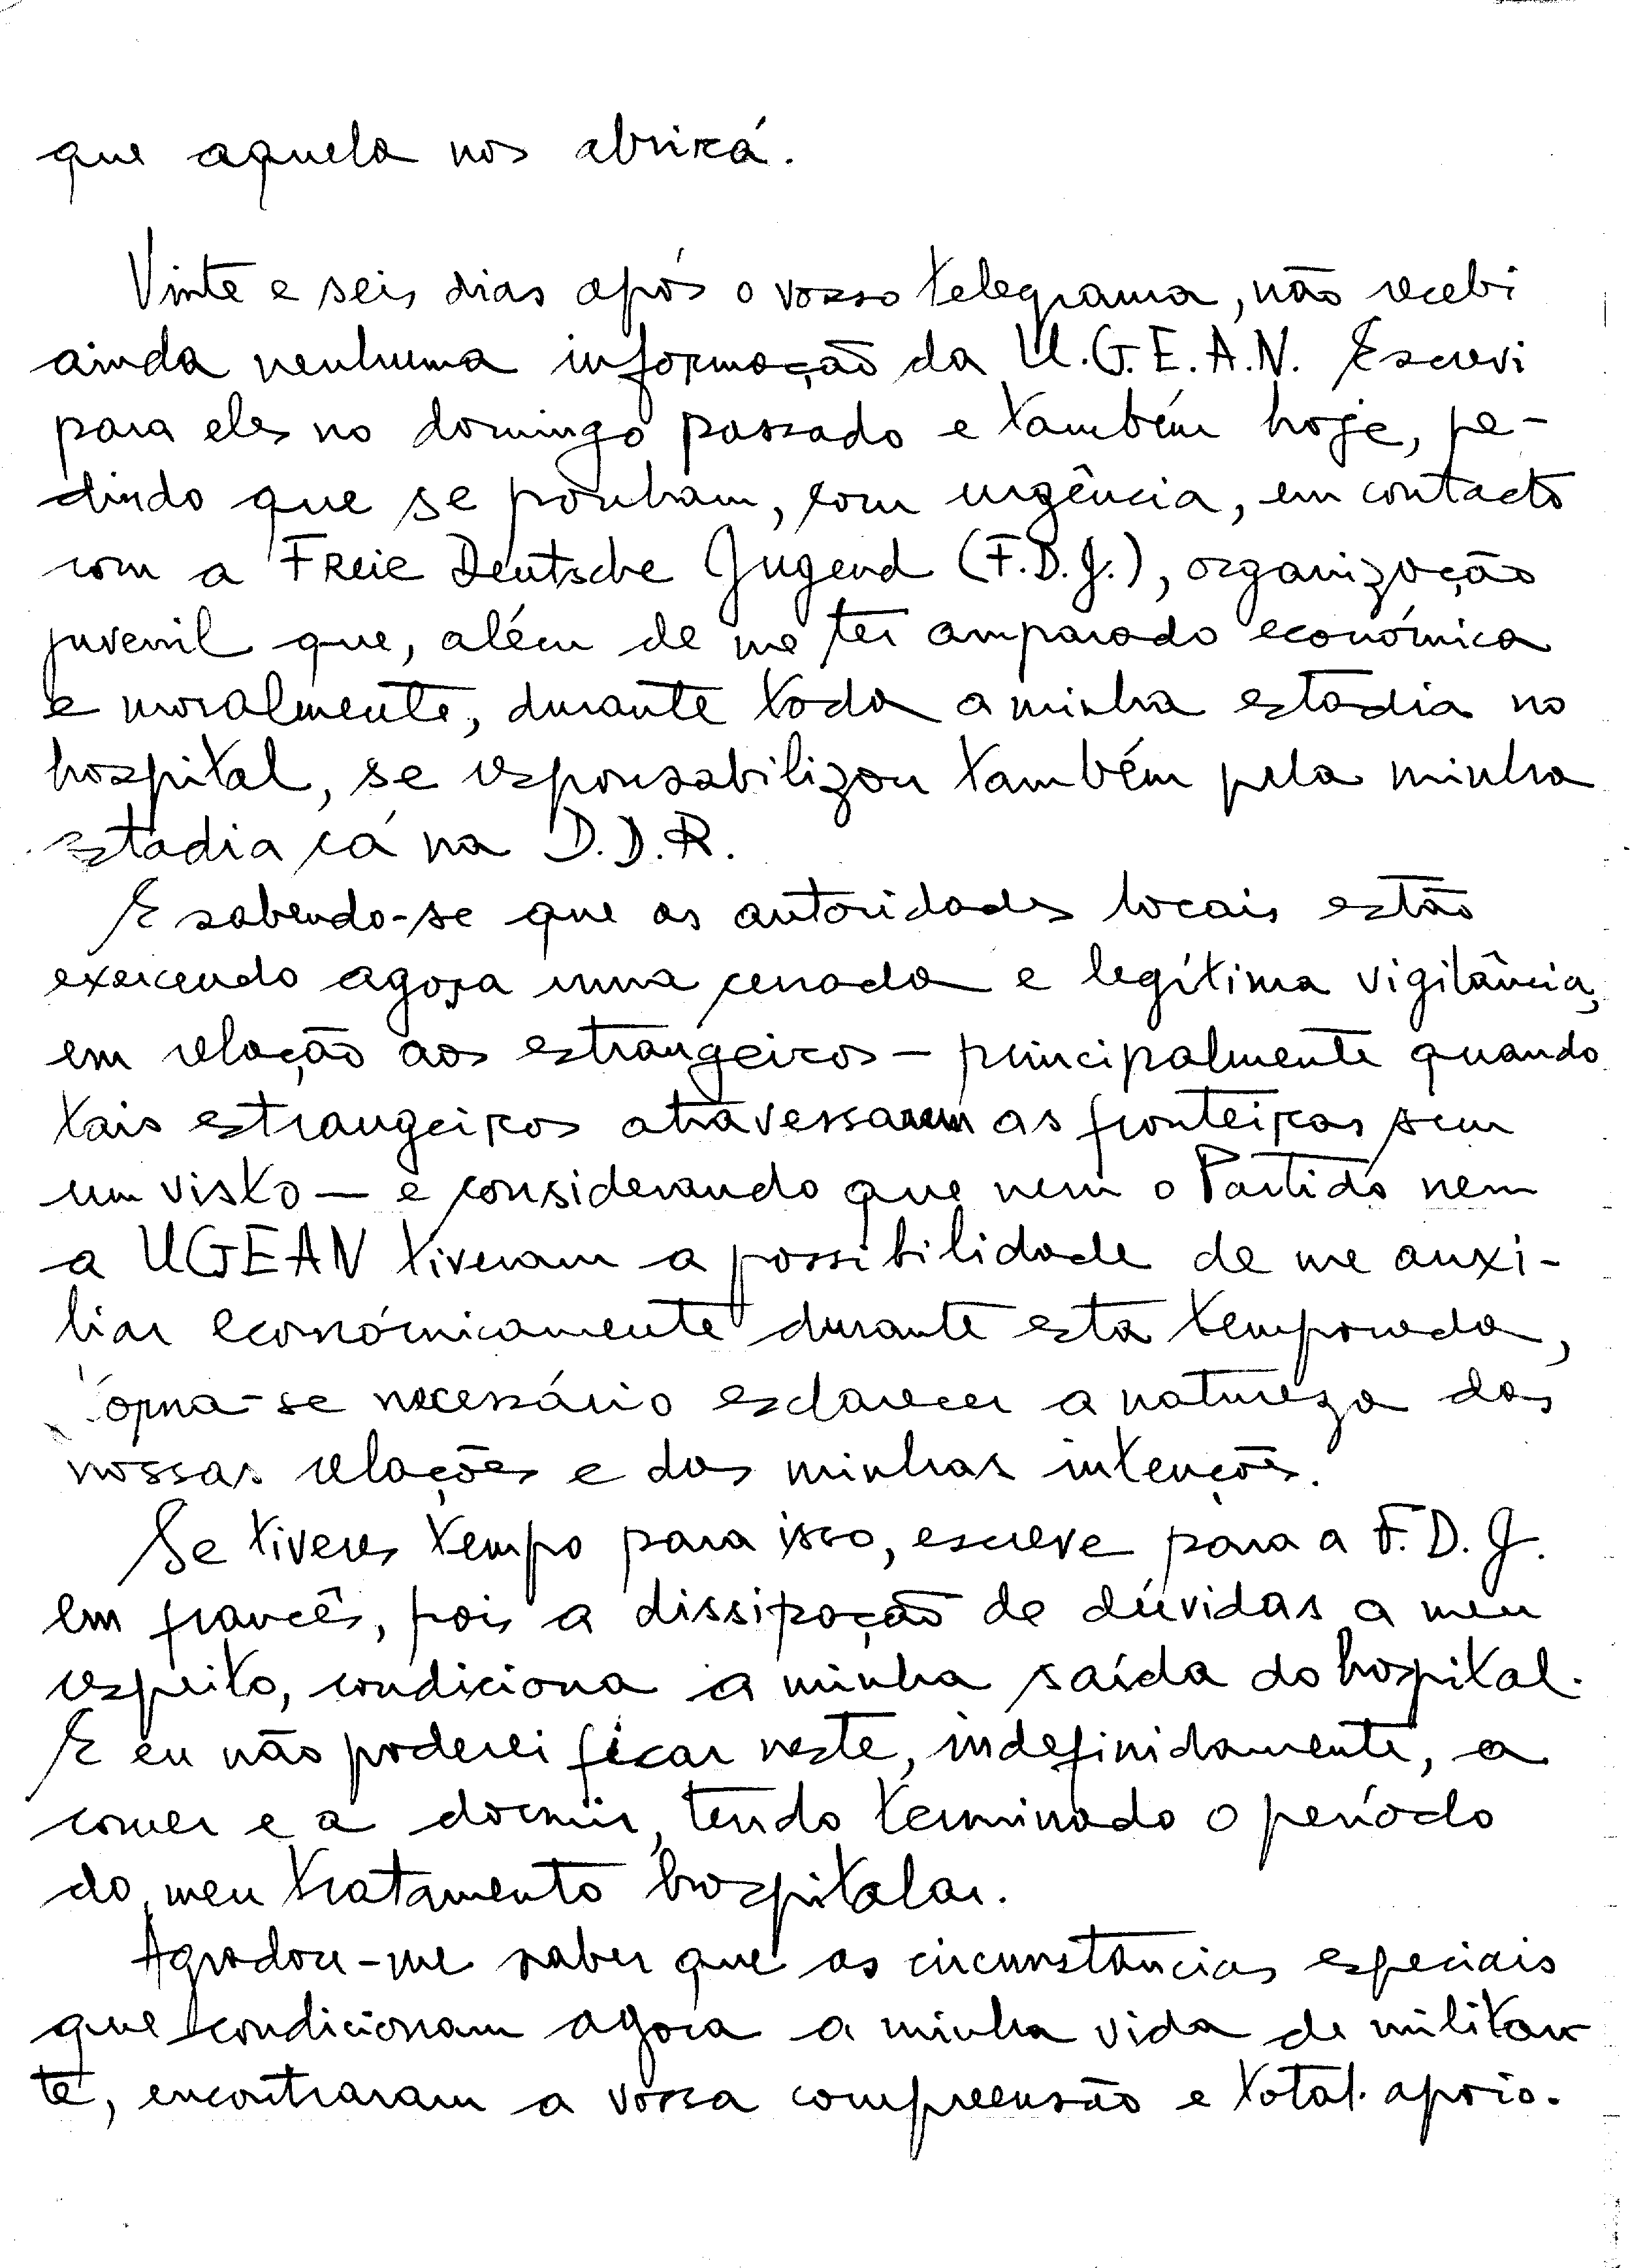 que aquela nos abrirá.
Vinte e seis dias após o vosso telegrama, não recebi
ainda nenhuma informação da U.G.E.A.N. Escrevi
para eles no domingo passado e também hoje, pe-
dindo que se ponham, com urgência, em contacto
com a Freie Deutsche Jugend (F.D.J.), organização
juvenil que, além de me ter amparado económica
e moralmente, durante toda a minha estadia no
hospital, se responsabilizou também pela minha
estadia cá na D.D.R.
E sabendo-se que as autoridades locais estão
exercendo agora uma cerrada e legítima vigilância,
em relação aos estrangeiros — principalmente quando
tais estrangeiros atravessarem as fronteiras sem
um visto — e considerando que nem o Partido nem
a UGEAN tiveram a possibilidade de me auxi-
liar económicamente durante esta temporada,
torna-se necessário esclarecer a natureza das
nossas relações e das minhas intenções.
Se tiveres tempo para isso, escreve para a F.D.J.
em francês, pois a dissipação de dúvidas a meu
respeito, condiciona a minha saída do hospital.
E eu não poderei ficar neste, indefinidamente, a
comer e a dormir, tendo terminado o período
do meu tratamento hospitalar.
Agradou-me saber que as circunstâncias especiais
que condicionam agora a minha vida de militan-
te, encontraram a vossa compreensão e total apoio.